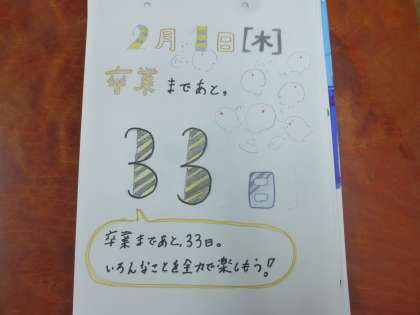 2月1日[木]
卒業まであと、
33日
卒業まであと、33日。
いろんなことを全力で楽しもう!!